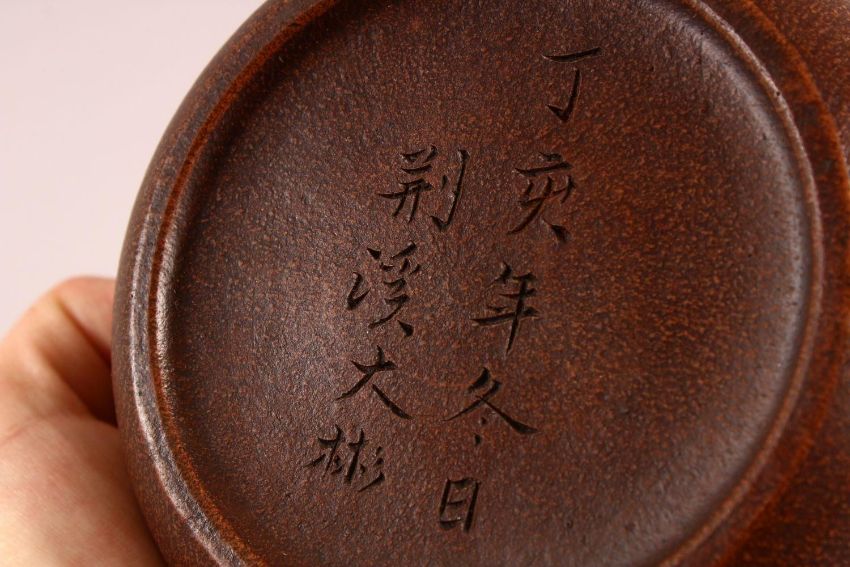 丁亥年冬日
荆溪大彬